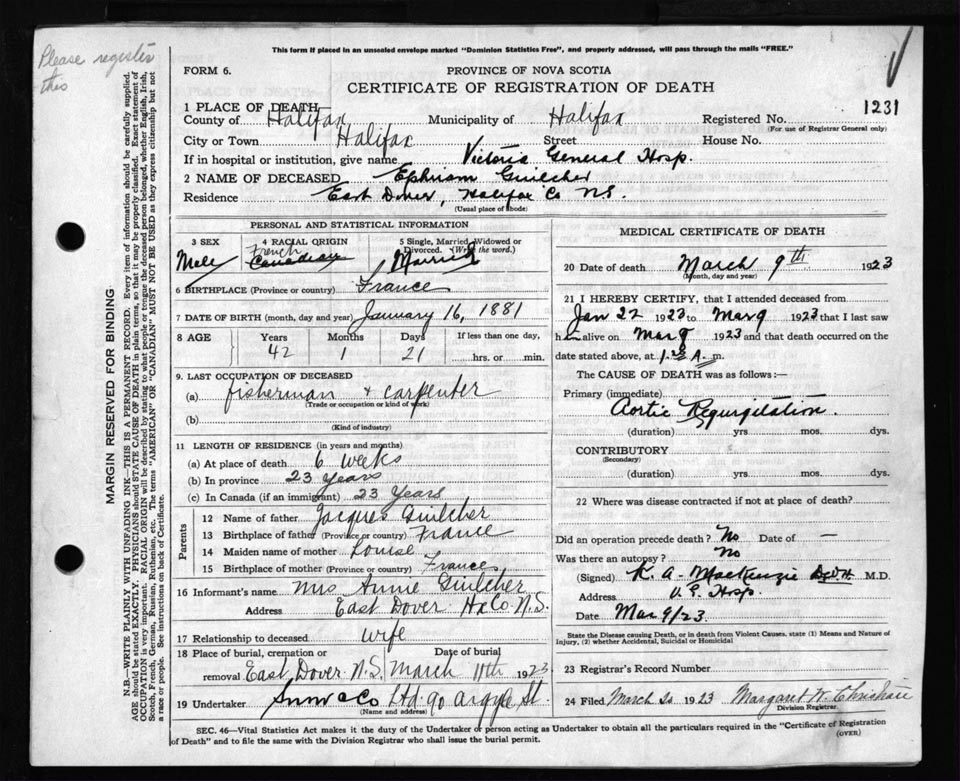 Please register
this
This form if placed in an unsealed envelope marked "Dominion Statistics Free", and properly addressed, will pass through the mails "FREE."
FORM 6.
PROVINCE OF NOVA SCOTIA
CERTIFICATE OF REGISTRATION OF DEATH
1231
1 PLACE OF DEATH
County of Halifax Municipality of Halifax Registered No.
(For use of Registrar General only)
City or Town Halifax Street House No.
If in hospital or institution, give name Victoria General Hosp.
2 NAME OF DECEASED Ephriam Guilcher
Residence East Dover, Halifax Co N.S.
(Usual place of abode)
MARGIN RESERVED FOR BINDING
N.B.—WRITE PLAINLY WITH UNFADING INK—THIS IS A PERMANENT RECORD. Every item of information should be carefully supplied.
AGE should be stated EXACTLY. PHYSICIANS should STATE CAUSE OF DEATH in plain terms, so that it may be properly classified. Exact statement of
OCCUPATION is very important. RACIAL ORIGIN will be described by stating to what people or tongue the deceased person belonged, whether English, Irish,
Scotch, French, German, Russian, Ruthenian, etc. The terms "AMERICAN" OR "CANADIAN" MUST NOT BE USED as they express citizenship but not
a race or people. See instructions on back of Certificate.
PERSONAL AND STATISTICAL INFORMATION
3 SEX
4 RACIAL ORIGIN
5 Single, Married, Widowed or
Divorced. (Write the word.)
Male
French
Canadian
Married
6 BIRTHPLACE (Province or country) France
7 DATE OF BIRTH (month, day and year) January 16, 1881
8 AGE
Years
Months
Days
If less than one day,
42
1
21
hrs. or min.
9. LAST OCCUPATION OF DECEASED
(a) fisherman + carpenter
(Trade or occupation or kind of work)
(b)
(Kind of industry)
11 LENGTH OF RESIDENCE (in years and months)
(a) At place of death 6 weeks
(b) In province 23 years
(c) In Canada (if an immigrant) 23 Years
Parents
12 Name of father Jacques Guilcher
13 Birthplace of father (Province or country) France
14 Maiden name of mother Louise
15 Birthplace of mother (Province or country) France
16 Informant's name Mrs Annie Guilcher
Address East Dover Hx Co. N.S.
17 Relationship to deceased wife
18 Place of burial, cremation or Date of burial
removal East Dover N.S. March 11th 1923
19 Undertaker Snow & Co Ltd. 90 Argyle St.
(Name and address)
MEDICAL CERTIFICATE OF DEATH
20 Date of death March 9th 1923
(Month, day and year)
21 I HEREBY CERTIFY, that I attended deceased from
Jan 22 1923 to Mar 9 1923 that I last saw
him alive on Mar 9 1923 and that death occurred on the
date stated above, at A. m.
The CAUSE OF DEATH was as follows:—
Primary (immediate)
Aortic Regurgitation.
(duration) yrs mos. dys.
CONTRIBUTORY
(Secondary)
(duration) yrs. mos. dys.
22 Where was disease contracted if not at place of death?
Did an operation precede death? No Date of —
Was there an autopsy? No
(Signed) K. A. MacKenzie M.D.
Address V. G. Hosp.
Date Mar 9/23
State the Disease causing Death, or in death from Violent Causes, state (1) Means and Nature of
Injury, (2) whether Accidental, Suicidal or Homicidal
23 Registrar's Record Number
24 Filed March 20 1923 Margaret W. Christie
Division Registrar.
SEC. 46—Vital Statistics Act makes it the duty of the Undertaker or person acting as Undertaker to obtain all the particulars required in the "Certificate of Registration
of Death" and to file the same with the Division Registrar who shall issue the burial permit.
(OVER)